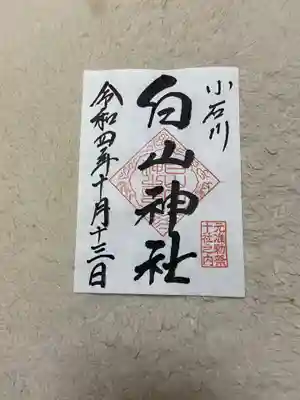 小石川
白山神社
令和四年十月十三日
元准勅祭
十社之内